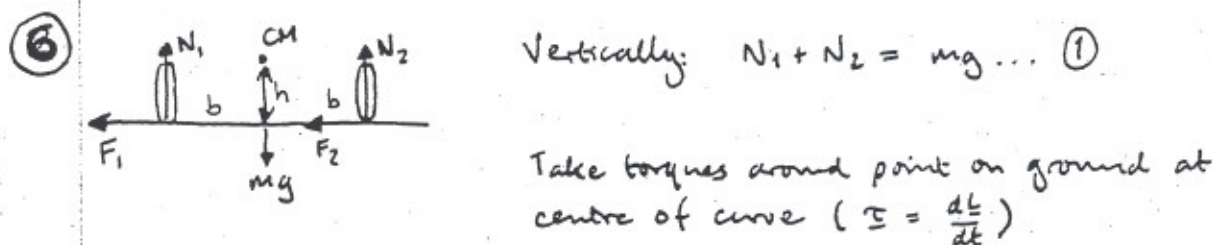 6
N₁ CM N₂
b h b
F₁ F₂
mg
Vertically: N₁ + N₂ = mg ... ①
Take torques around point on ground at
centre of curve ( τ = dL/dt )